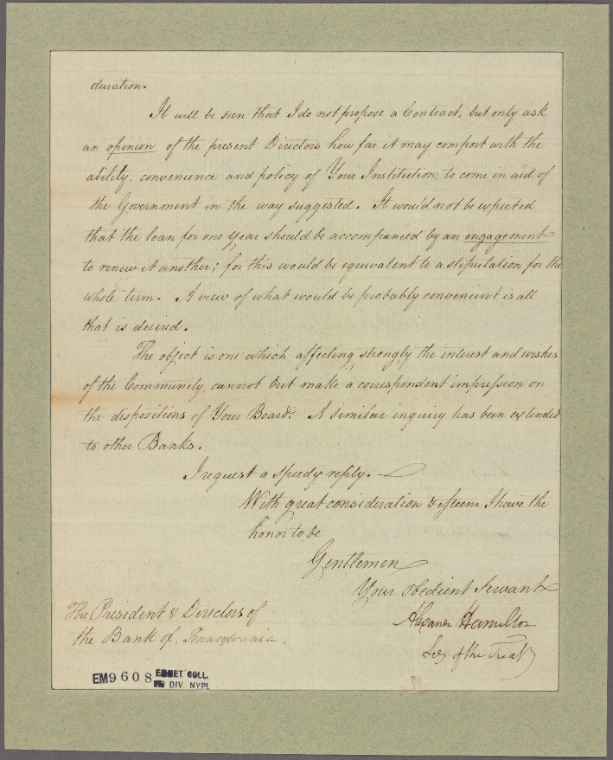 duration.
It will be seen that I do not propose a Contract, but only ask
an opinion of the present Directors how far it may comport with the
ability, convenience and policy of Your Institution, to come in aid of
the Government in the way suggested. It would not be expected
that the loan for one year should be accompanied by an engagement
to renew it another; for this would be equivalent to a stipulation for the
whole term. A view of what would be probably convenient is all
that is desired.
The object is one which affecting strongly the interest and wishes
of the Community, cannot but make a correspondent impression on
the dispositions of Your Board. A similar inquiry has been extended
to other Banks.
I request a speedy reply.
With great consideration & esteem I have the
honor to be
Gentlemen
Your obedient Servant
Alexander Hamilton
Secy of the Treasy
The President & Directors of
the Bank of Pennsylvania.
EM9608 EMMET COLL.
MS DIV. NYPL